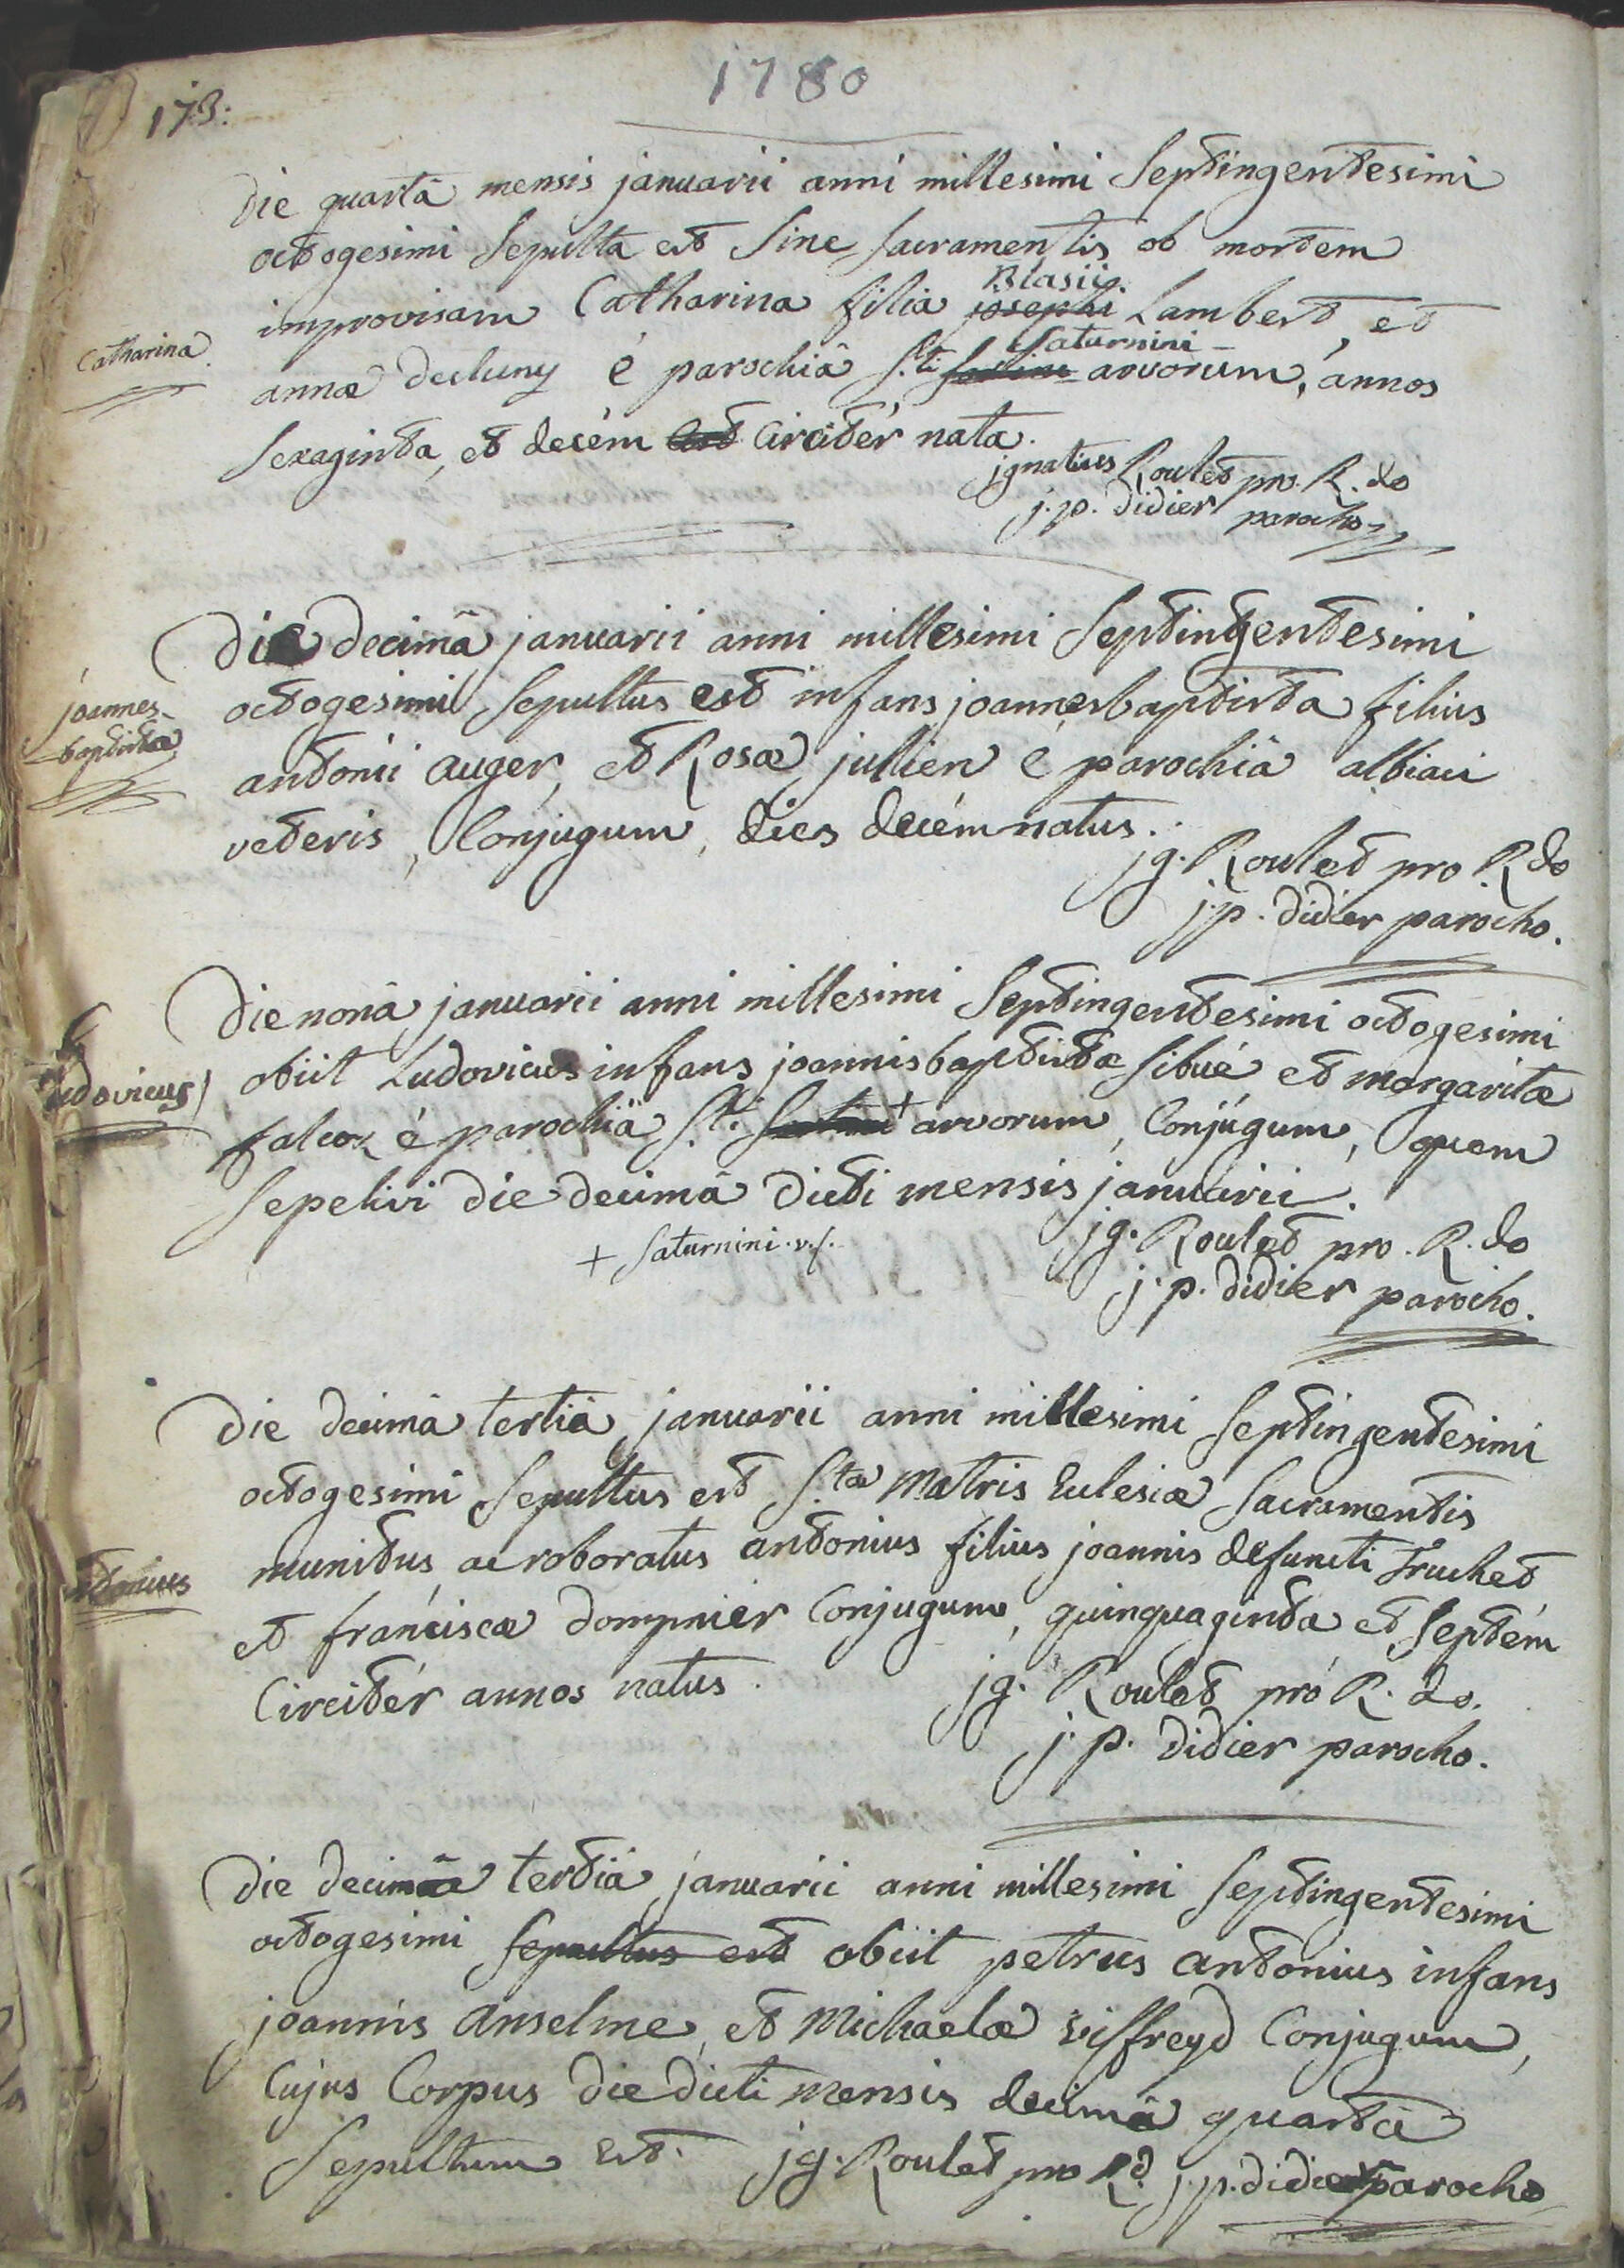 1780
173:
Die quartâ mensis januarii anni millesimi Septingentesimi
octogesimi Sepulta est Sine Sacramentis ob mortem
Blasii
improvisam Catharina filia josephi Lambert, et
Saturnini
Catharina
annæ decluny é parochiâ S.ti arvorum, annos
Sexaginta, et decém est Circitér nata.
jgnatius Roulet pro. R. do
j. p. didier parocho
Die Decimâ januarii anni millesimi Septingentesimi
octogesimi Sepultus est infans joannesbaptista filius
joannes
baptista
antonii auger, et Rosæ jullien é parochiâ albiaci
veteris, Conjugum, dies decém natus.
jg. Roulet pro R do
j. p. didier parocho.
Die nonâ januarii anni millesimi Septingentesimi octogesimi
obiit Ludovicus infans joannisbaptistæ Sibué et margaritæ
Ludovicus
falcoz é parochiâ S.ti + arvorum, Conjúgum, quem
Sepelivi die decimâ dicti mensis januarii.
+ Saturnini. v.s.
jg. Roulet pro. R. do
j. p. didier parocho.
Die decimâ tertiâ januarii anni millesimi Septingentesimi
octogesimi Sepultus est S.tæ Matris Ecclesiæ Sacramentis
munitus ac roboratus antonius filius joannis defuncti Truchet
antonius
et franciscæ dompnier Conjugum, quinquaginta et Septém
Circitér annos natus.
jg. Roulet pro R. do.
j. p. didier parocho.
Die decimâ tertiâ januarii anni millesimi Septingentesimi
octogesimi Sepultus est obiit petrus antonius infans
joannis anselme, et Michaelæ Viffreyd Conjugum,
Cujus Corpus die dicti mensis decimâ quartâ
Sepultum Est. jg. Roulet pro Rd. j. p. didier parocho